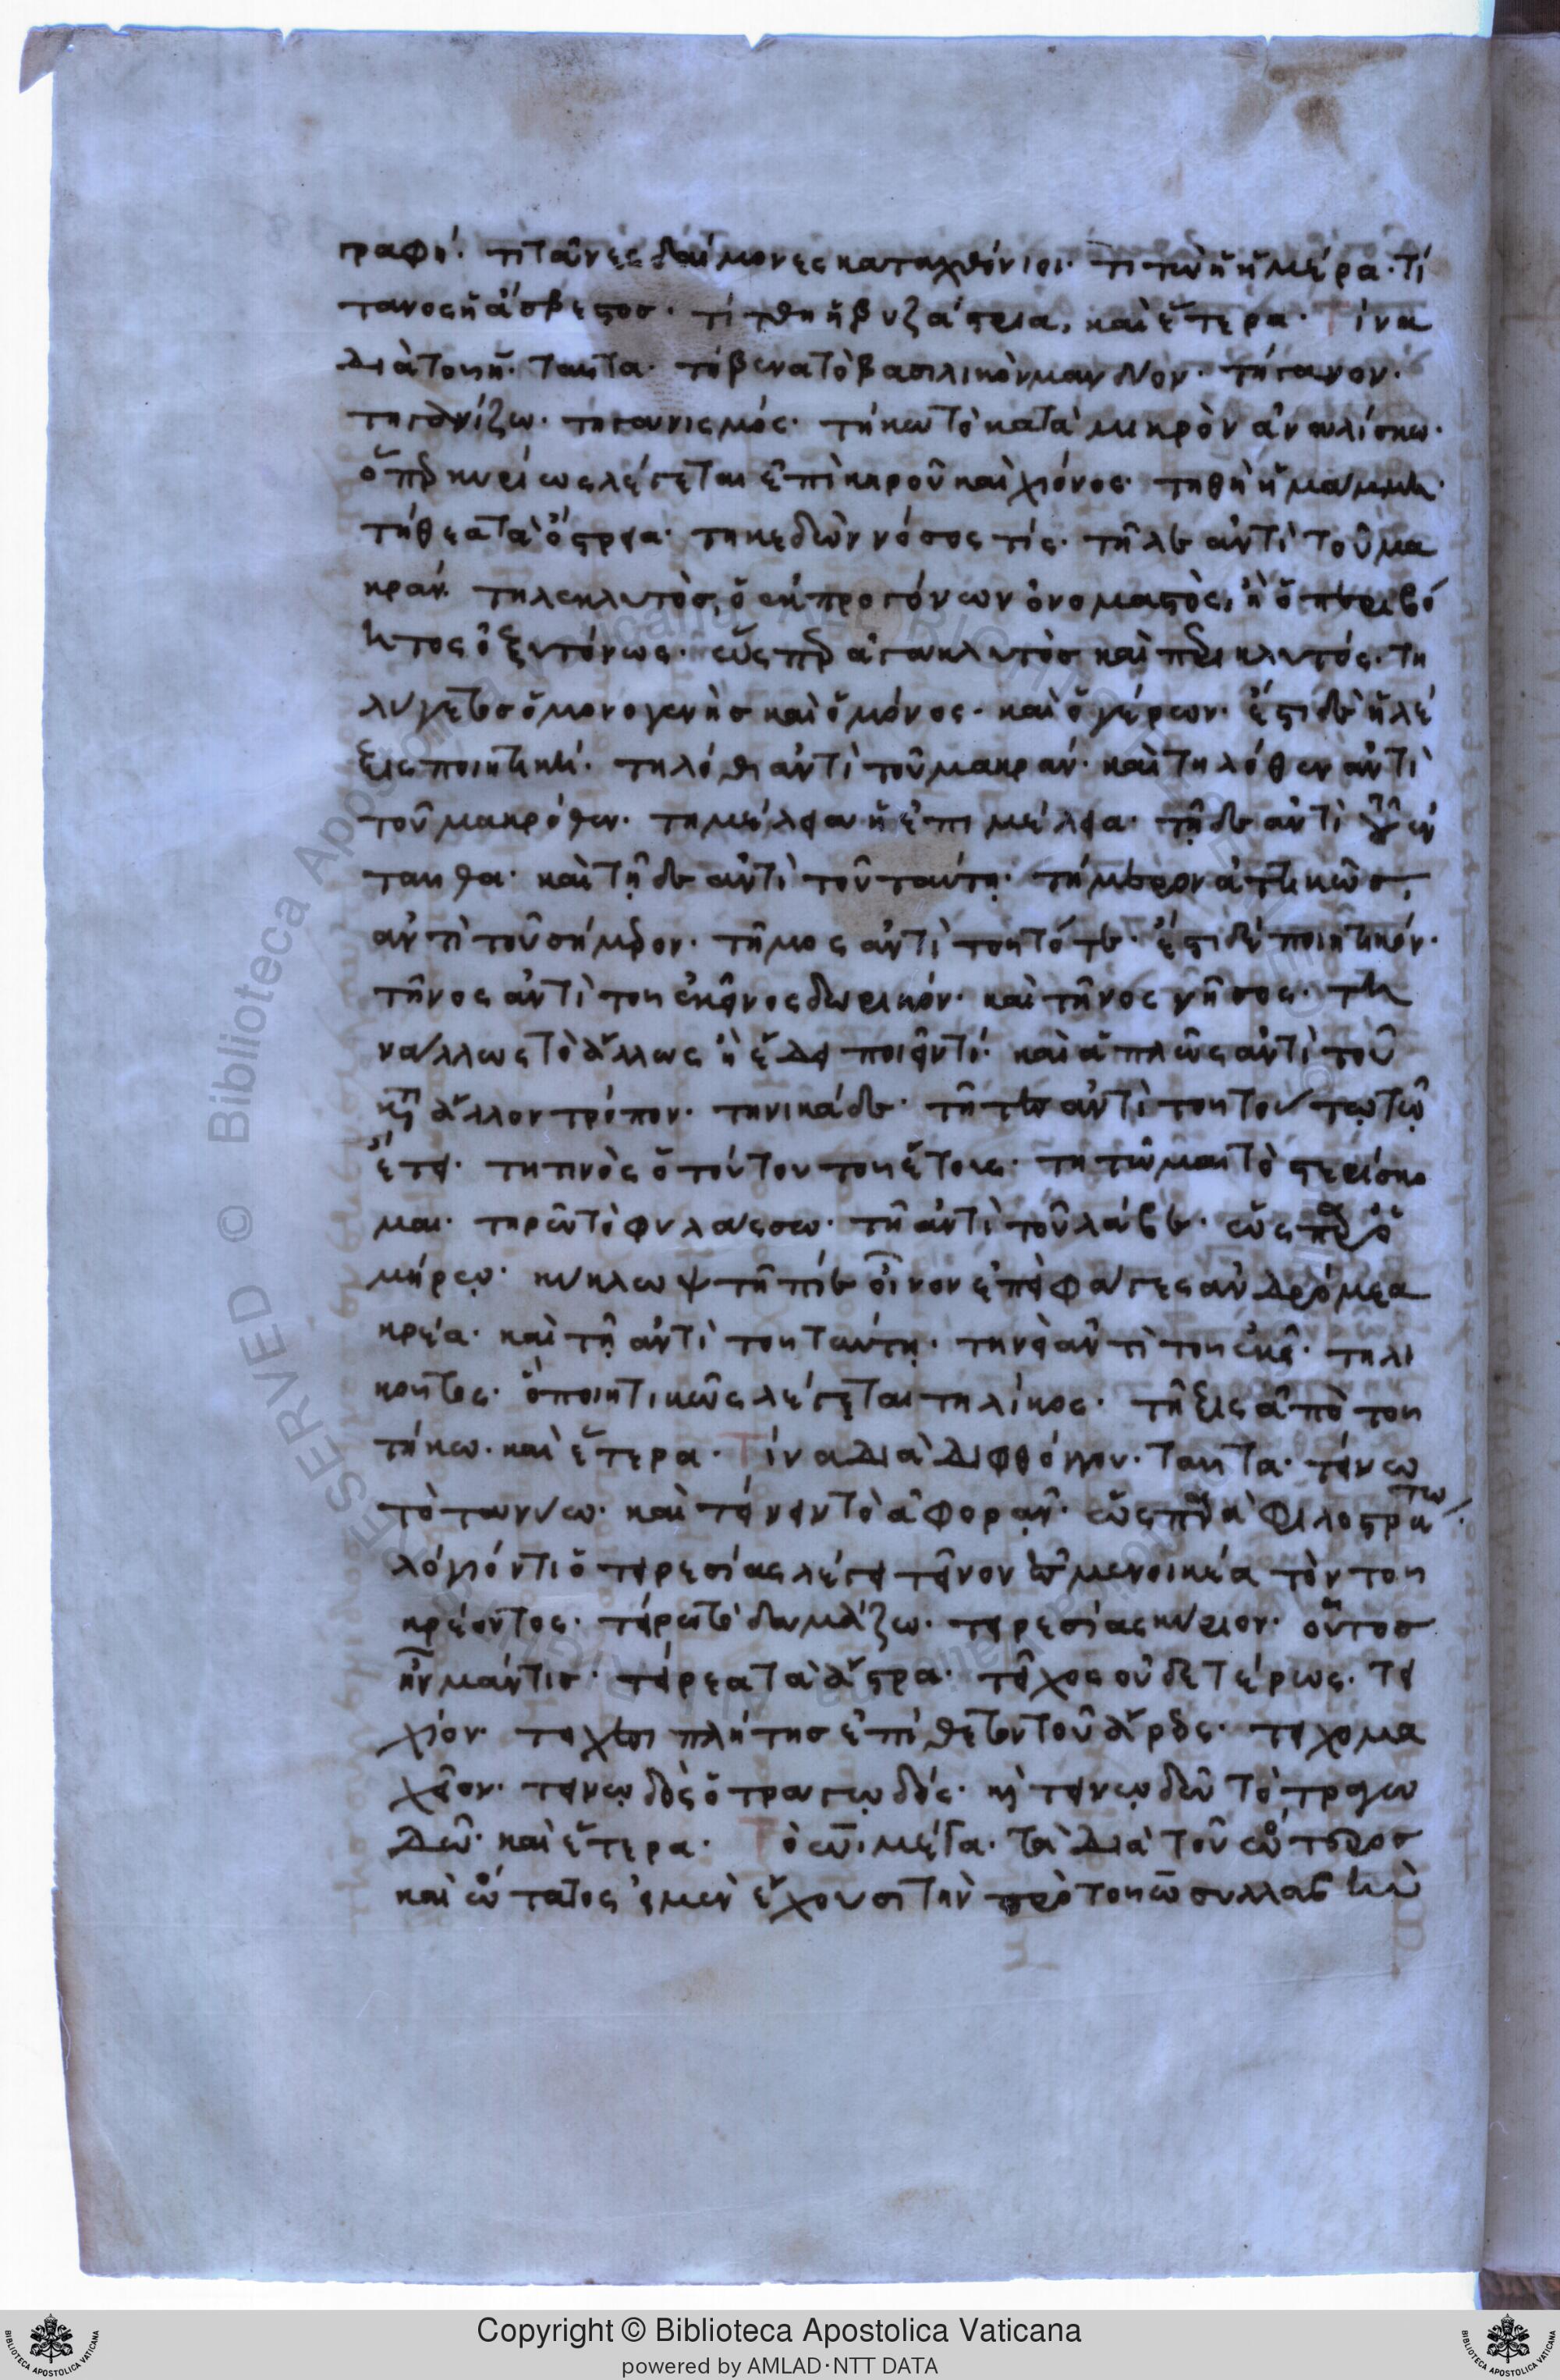 γραφή. τιτᾶνες δαίμονες καταχθόνιοι. τιτὼ ἡ ἡμέρα. τί
τανος ἡ ἄσβεστος. τίτθη ἡ βυζάστρια, καὶ ἕτερα. Τίνα
διὰ τοῦ η. ταῦτα. τήβεννα τὸ βασιλικὸν μανδύον. τήγανον.
τηγανίζω. τηγανισμός. τήκω τὸ κατὰ μικρὸν ἀναλίσκω.
ὅπερ κυρίως λέγεται ἐπὶ κηροῦ καὶ χιόνος. τηθὴ ἡ μάμμη.
τήθεα τὰ ὄστρεα. τηκεδὼν νόσος τίς. τῆλε ἀντὶ τοῦ μα
κράν. τηλεκλυτὸς, ὁ ἐκ προγόνων ὀνομαστὸς, ἢ ὁ περιβό
ητος ὀξυτόνως. ὥσπερ ἀγακλυτὸς καὶ περικλυτός. τη
λύγετος ὁ μονογενὴς καὶ ὁ μόνος. καὶ ὁ γέρων. ἔστι δὲ ἡ λέ
ξις ποιητική. τηλόθι ἀντὶ τοῦ μακράν. καὶ τηλόθεν ἀντὶ
τοῦ μακρόθεν. τημέλεια ἡ ἐπιμέλεια. τῇδε ἀντὶ τοῦ ἐν
ταῦθα. καὶ τῇδε ἀντὶ τοῦ ταύτῃ. τήμερον ἀττικῶς,
ἀντὶ τοῦ σήμερον. τῆμος ἀντὶ τοῦ τότε. ἔστι δὲ ποιητικόν.
τῆνος ἀντὶ τοῦ ἐκεῖνος δωρικόν. καὶ τῆνος νῆσος. τη
νάλλως τὸ ἄλλως ἢ ἔδει ποιεῖν τί. καὶ ἁπλῶς ἀντὶ τοῦ
κατ ἄλλον τρόπον. τηνικάδε. τῆτες ἀντὶ τοῦ τούτῳ τῷ
ἔτει. τητινὸς ὁ τούτου τοῦ ἔτους. τητῶμαι τὸ στερίσκο
μαι. τηρῶ τὸ φυλάσσω. τῆ ἀντὶ τοῦ λάβε. ὡς παρ ὁ
μήρῳ. κύκλωψ τῆ πίε οἶνον ἐπεὶ φάγες ἀνδρόμεα
κρέα. καὶ τῇ ἀντὶ τοῦ ταύτῃ. τηνεὶ ἀντὶ τοῦ ἐκεῖ. τηλι
κοῦτος. ὃ ποιητικῶς λέγεται τηλίκος. τῆξις ἀπὸ τοῦ
τήκω. καὶ ἕτερα. Τίνα διὰ διφθόγγου. ταῦτα. τείνω
τὸ τανύω. καὶ τείνειν τὸ ἀφορᾶν. ὡς παρὰ φιλοστράτω
λόγιόν τι ὁ τειρεσίας λέγει τεῖνον ἐς μενοικέα τὸν τοῦ
κρέοντος. τείρω τὸ δαμάζω. τειρεσίας κύριον. οὗτος
ἦν μάντις. τείρεα τὰ ἄστρα. τεῖχος οὐδετέρως. τει
χίον. τειχεσιπλήτης ἐπίθετον τοῦ ἄρεος. τειχομα
χεῖον. τεινῳδὸς ὁ τραγῳδός. καὶ τεινῳδῶ τὸ τραγω
δῶ. καὶ ἕτερα. Τὸ ω μέγα. τὰ διὰ τοῦ ώτερος
καὶ ώτατος εἰ μὲν ἔχουσι τὴν πρὸ τοῦ ω συλλαβὴν